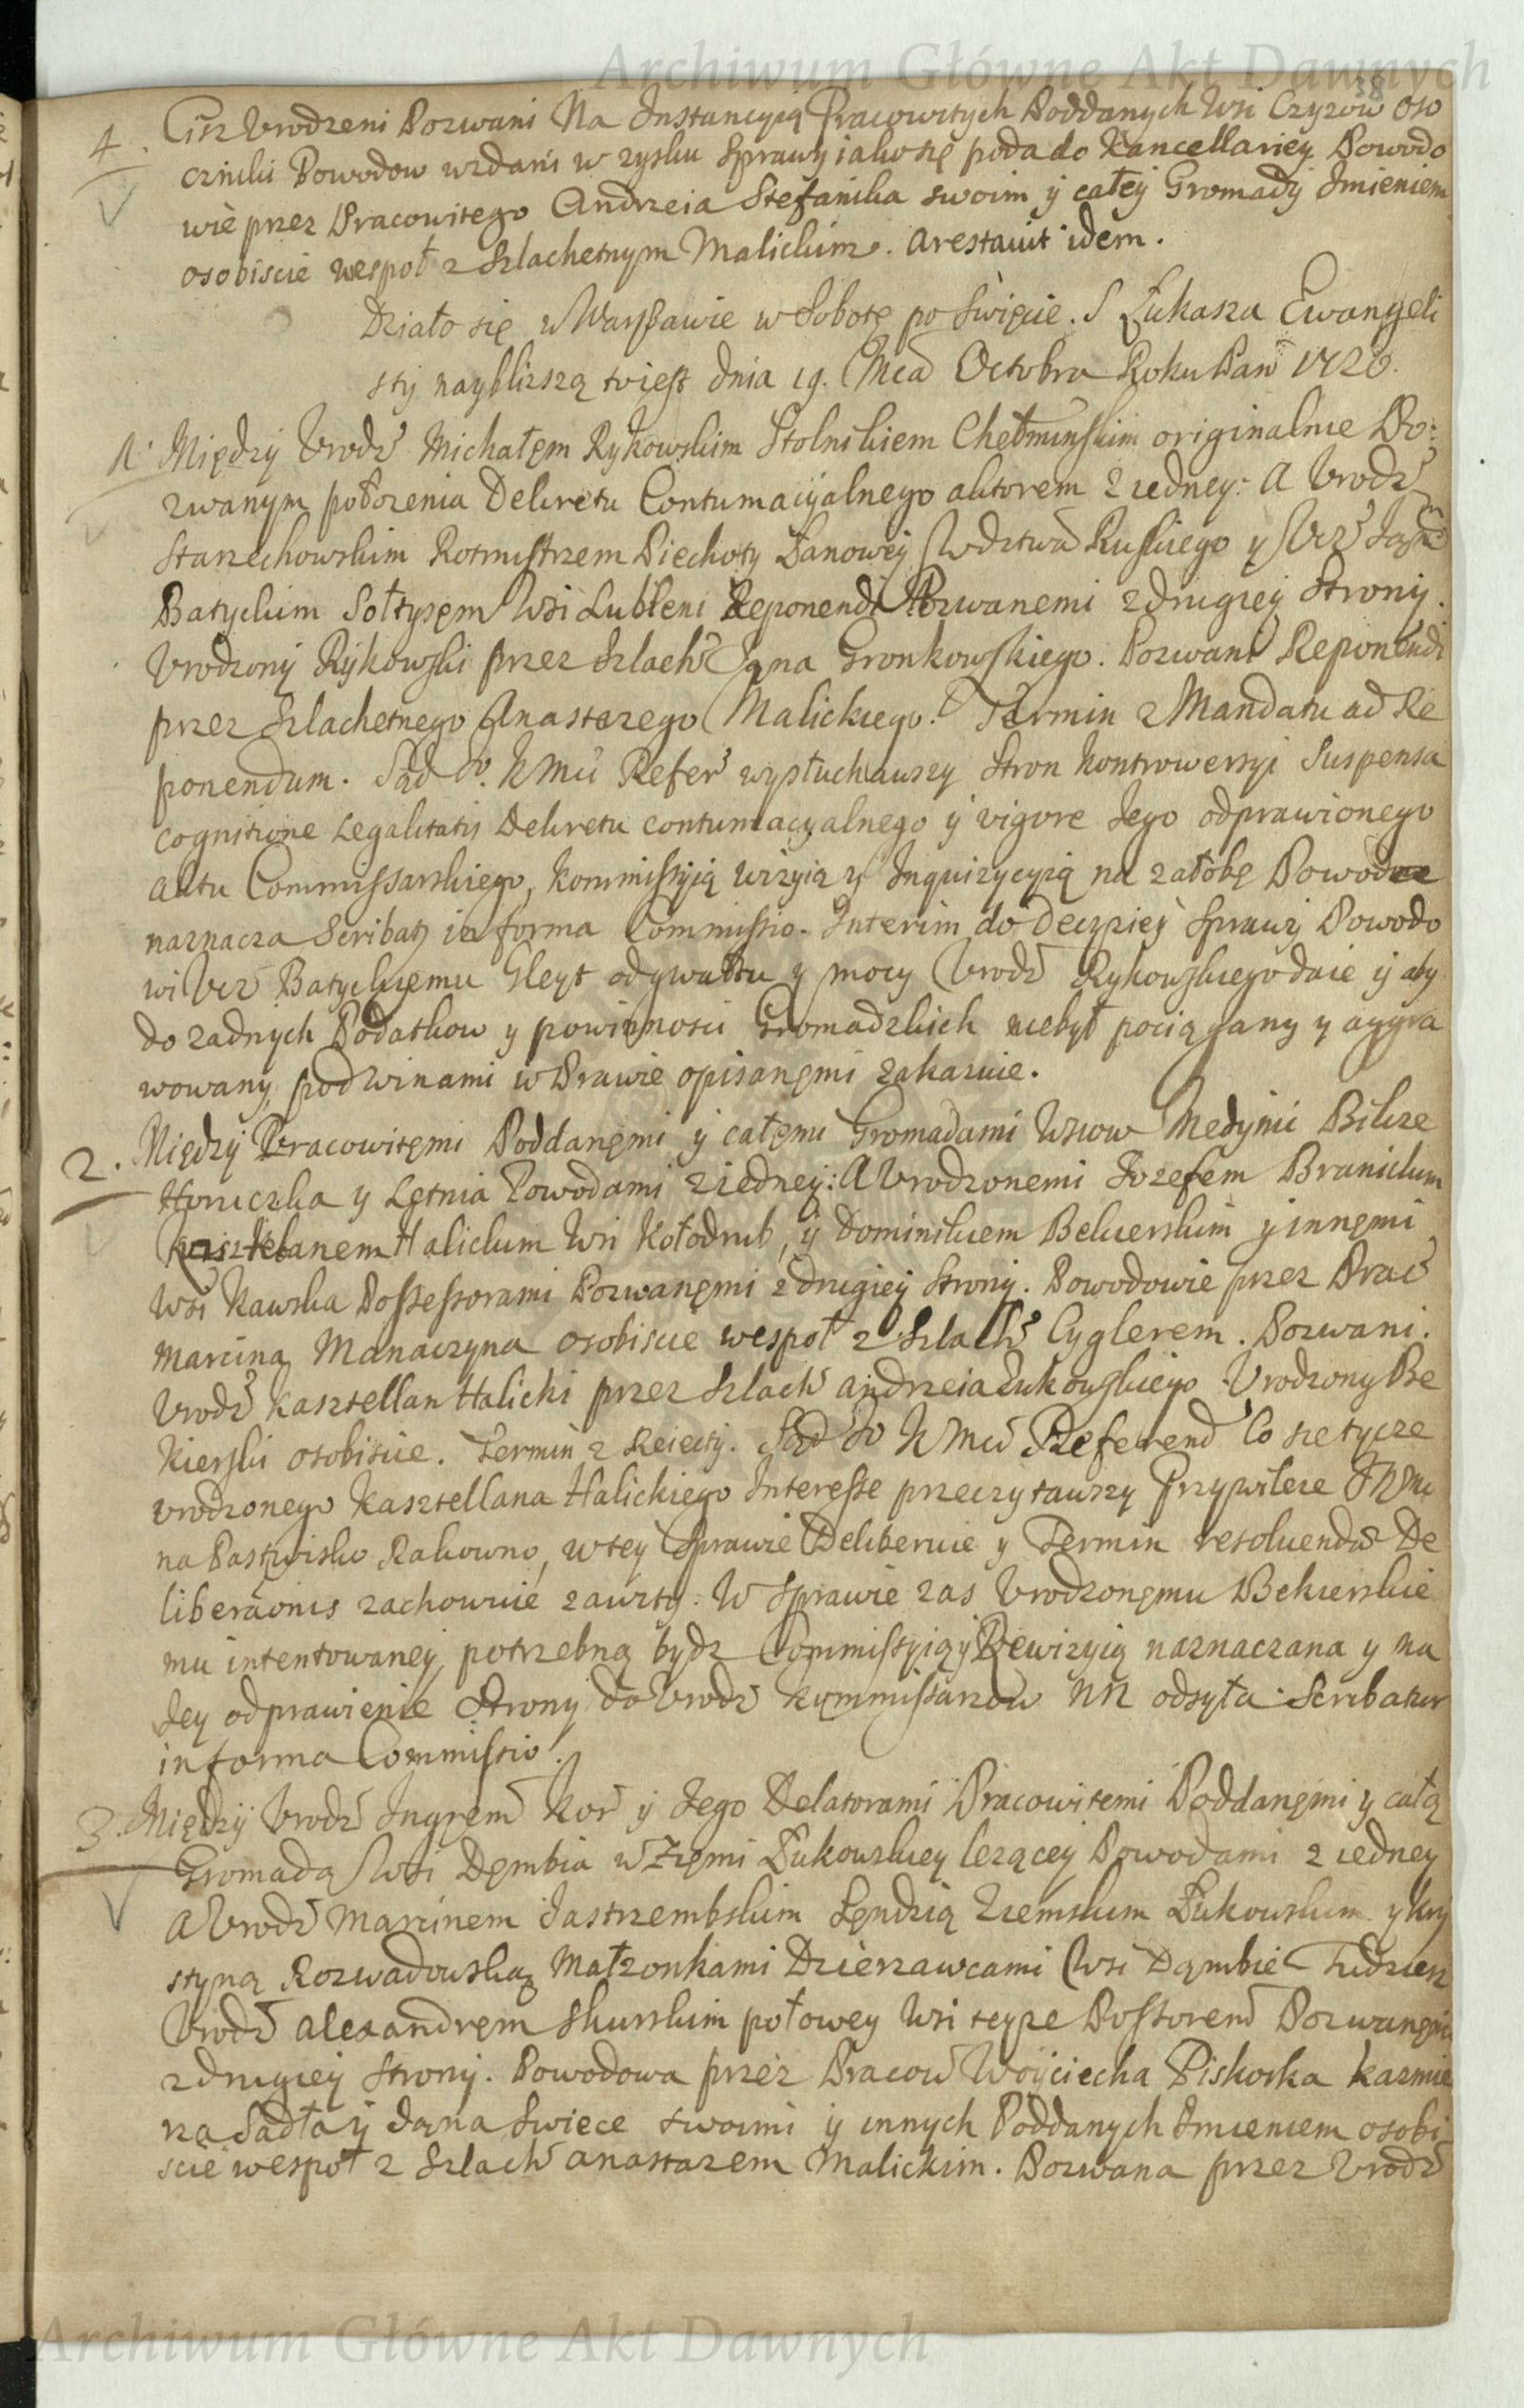 Archiwum Główne Akt Dawnych
38
4. Ciż Vrodzeni Pozwani Na Instancyią Pracowitych Poddanych Wsi Czyzow Oso
czniki Powodow wzdani w zysku Sprawy iako się poda do Kancellariey Powodo
wie przez Pracowitego Andrzeia Stefanika swoim ÿ całeÿ Gromadÿ Imieniem
osobiscie wespoł z Szlachetnym Malickim. Arestavit idem.
Działo się w Warszawie w Sobotę po Swięcie. S Łukasza Ewangeli
stÿ nayblizszą to iest dnia 19. Mca Octobra Roku Pań 1726.
1. Międzÿ Vrodź Michałęm Rykowskim Stolnikiem Chełminskim originalnie Po:
zwanym położenia Dekretu Contumacÿalnego aktorem z iedney: A Vrodź
Starzechowskim Rotmistrzem Piechoty Łanowey Wdztwa Ruskiego y Vcz
Batyckim Sołtysęm Wsi Lubleni Reponendi Pozwanemi z drugieÿ Stronÿ.
Vrodzony Rÿkowski przez Szlach Jana Gronkowskiego. Pozwani Reponendi
przez Szlachetnego Anastazego Malickiego. Termin z Mandatu ad Re
ponendum. Sąd J. K Mci Refer wysłuchawszy Stron kontrowersyi Suspensa
cognitione Legalitatis Dekretu contumacyalnego ÿ vigore Jego odprawionego
aktu Commissarskiego, kommissyią wizyią y Inquizycyią na załobę Powodow
naznacza Scribatz in forma Commissio. Interim do decyzieÿ Sprawÿ Powodo
wi Vcz Batyckięmu Gleyt od gwałtu y mocy Vrodź Rykowskiego daie ÿ aby
do zadnych Podatkow y powinnosci Gromadzkich niebył pociągany y aggra
wowany, pod winami w Prawie opisanęmi zakazuie.
2. Międzÿ Pracowitęmi Poddanęmi ÿ całęmi Gromadami Wsiow Medynic Bilcze
Horuczka y Lętnia Powodami z iedneÿ: A Vrodzonemi Jozefem Branickim
Kasztelanem Halickim Wsi Kołodrub, ÿ Dominikiem Bekierskim ÿ innęmi
Wsi Kawska Possessorami Pozwanęmi z drugieÿ Stronÿ. Powodowie przez Prac
Marcina Manaczyna osobiscie wespoł z Szlach Cyglerem. Pozwani.
Vrodź Kasztellan Halicki przez Szlach Andrzeia Łukowskiego. Vrodzony Be
kierski osobiscie. Termin z Reiectÿ. Sąd Jo K Mci Referend Co się tycze
vrodzonego Kasztellana Halickiego Interesse przeczytawszy Przywileie
na Pastwisko Rakowno, w teÿ Sprawie Deliberuie y Termin resoluendæ De
liberãonis zachowuie zawity. W Sprawie zas Vrodzonęmu Bekierskie
mu intentowaneÿ, potrzebną bydz Commissyią ÿ Rewizyią naznaczana y na
Jey odprawienie Stronÿ do Vrodź Kommissarzow NN odsyła. Scribatur
in forma Commissio.
3. Międzÿ Vrodź Ingrem Kor ÿ Jego Delatorami Pracowitemi Poddanęmi y całą
Gromadą Wsi Dęmbia w Ziemi Łukowskiey lezącey Powodami z iedney
A Vrodź Marcinem Jastrzembskim Sęndzią Ziemskim Łukowskim y Kry
styną Rozwadowską Małzonkami Dzierzawcami Wsi Dąmbie Tudziesz
Vrodź Alexandręm Skurskim połowey Wsi teyze Possorem Pozwanęmi
z drugieÿ Stronÿ. Powodowa przez Pracow Woÿciecha Piskorka Kazmie
rza Sadła ÿ Jana Swięce swoimi ÿ innych Poddanych Imieniem osobi
scie wespoł z Szlach Anastazem Malickim. Pozwana przez Vrodź
Archiwum Główne Akt Dawnych